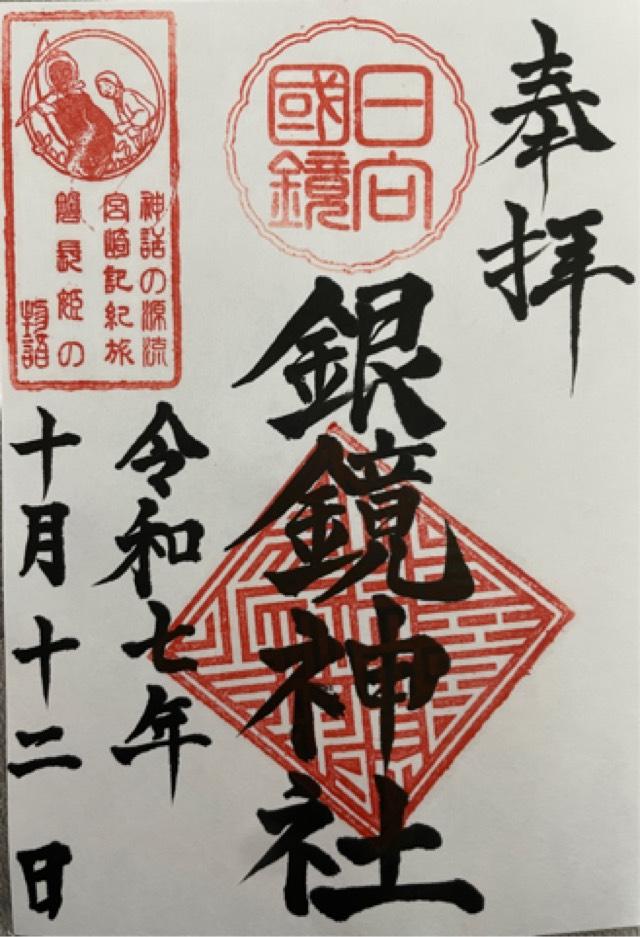 奉拝
日向
國鏡
銀鏡神社
令和七年
十月十二日
神話の源流
宮崎記紀旅
磐長姫の
物語